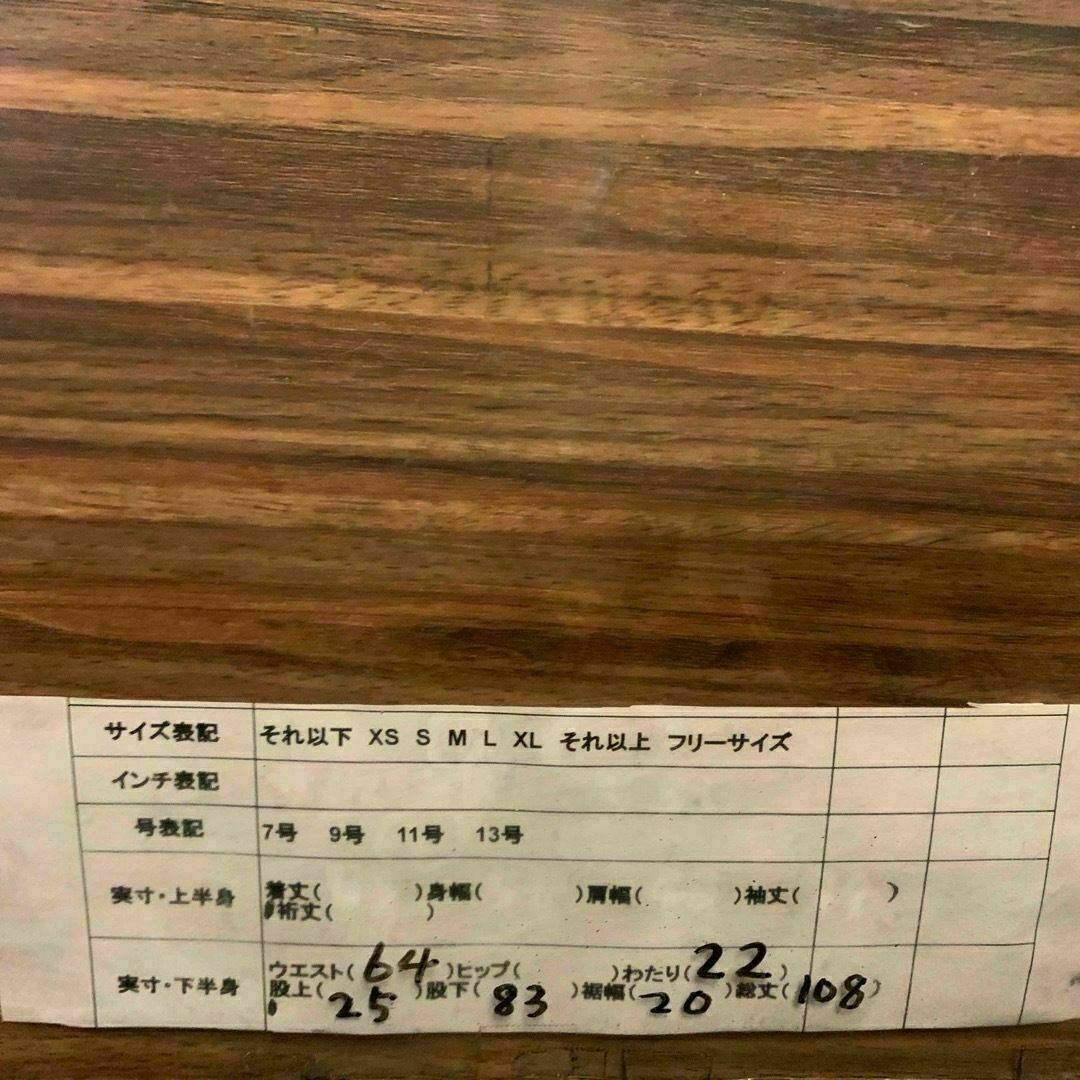 サイズ表記 それ以下 XS S M L XL それ以上 フリーサイズ
インチ表記
号表記 7号 9号 11号 13号
実寸・上半身 着丈( )身幅( )肩幅( )袖丈( )
裄丈( )
実寸・下半身 ウエスト(64)ヒップ( )わたり(22)
股上(25)股下(83)裾幅(20)総丈(108)